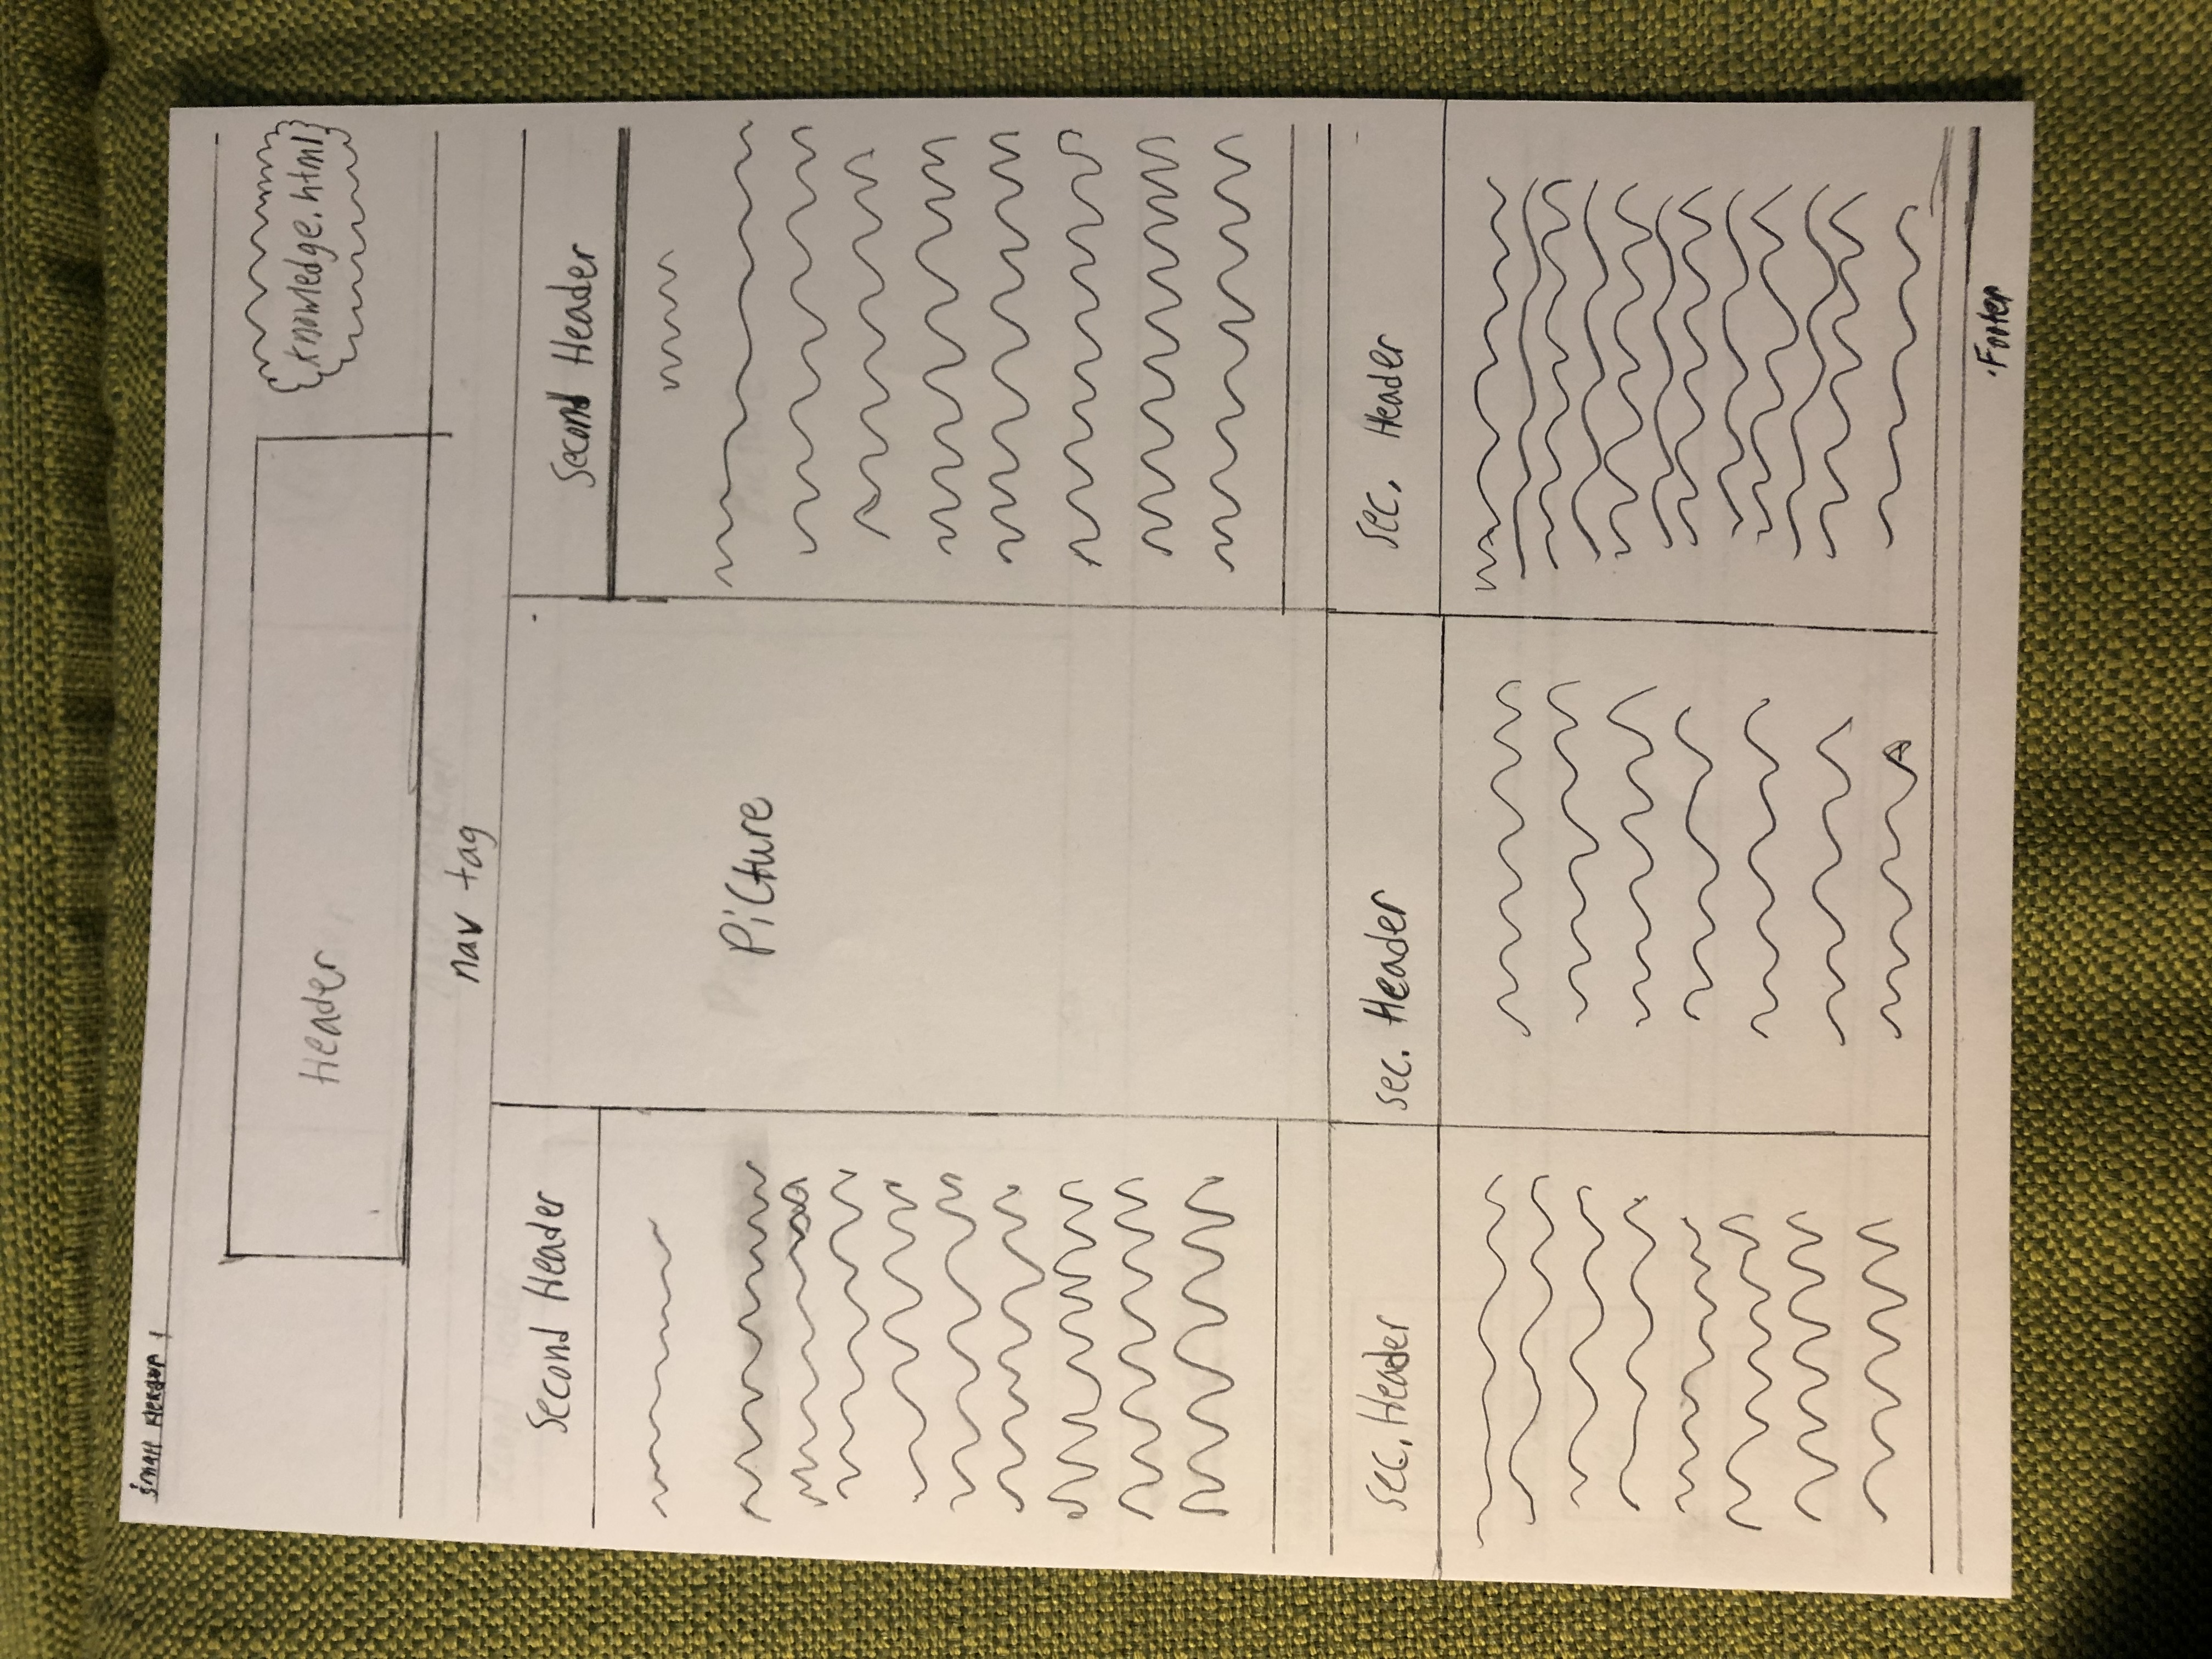 small Header
Header
knowledge.html
nav tag
Second Header
Second Header
Picture
sec. Header
sec. Header
sec. Header
Footer